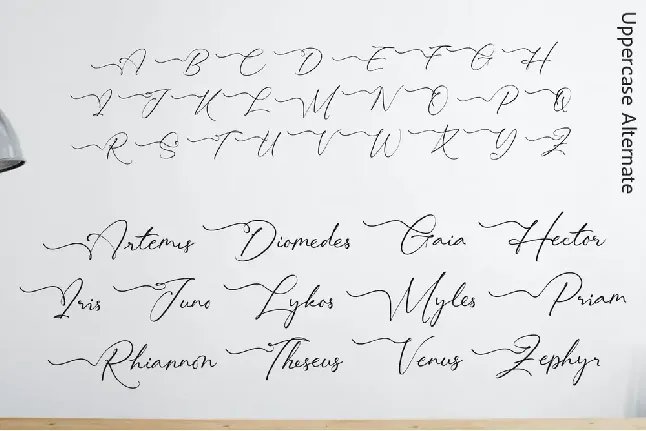 A B C D E F G H
I J K L M N O P Q
R S T U V W X Y Z
Artemis Diomedes Gaia Hector
Iris Juno Lykos Myles Priam
Rhiannon Theseus Venus Zephyr
Uppercase Alternate